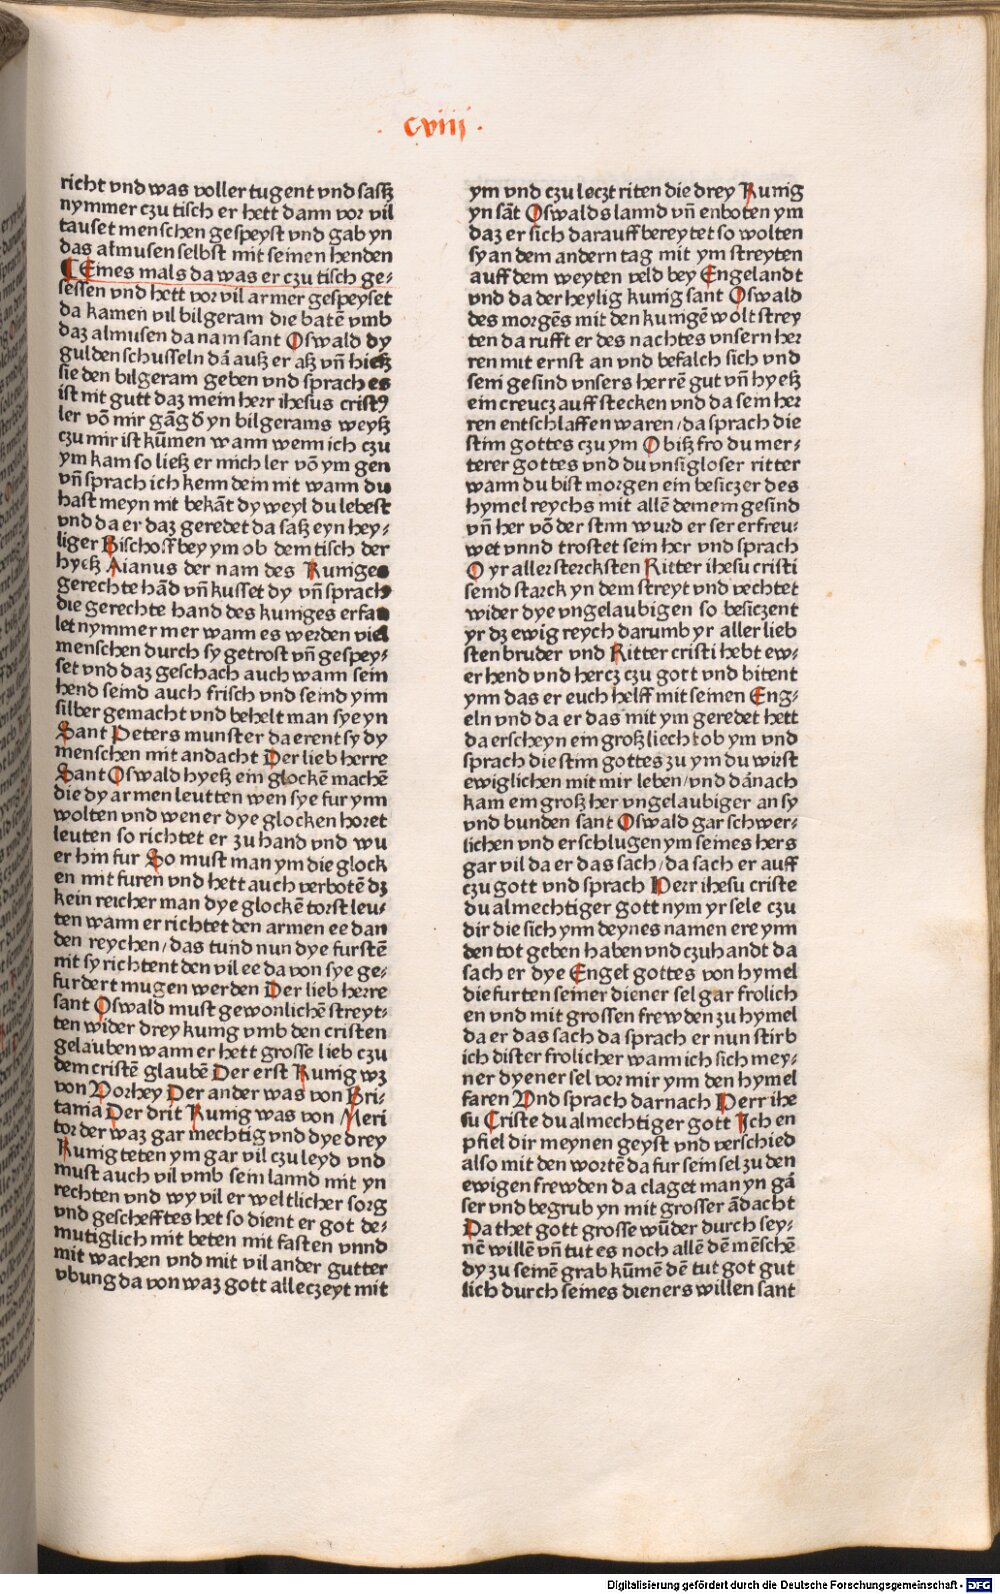 · cviiij ·
richt vnd was voller tugent vnd sasß
nymmer czu tisch er hett dann vor vil
tauset menschen gespeyst vnd gab yn
das almusen selbst mit seinen henden
Eines mals da was er czu tisch ge⸗
sessen vnd hett vor vil armer gespeyset
da kamen vil bilgeram die batē vmb
daz almusen da nam sant Oswald dy
gulden schusseln dā auß er aß vn̄ hieß
sie den bilgeram geben vnd sprach es
ist nit gutt daz mein herr ihesus cristꝰ
ler vō mir gāg d̄ yn bilgerams weyß
czu mir ist kūmen wann wenn ich czu
ym kam so ließ er mich ler vō ym gen
vn̄ sprach ich kenn dein nit wann du
hast meyn nit bekāt dy weyl du lebest
vnd da er daz geredet da saß eyn hey⸗
liger Bischoff bey ym ob dem tisch der
hyeß Aianus der nam des Kuniges
gerechte hād vn̄ kusset dy vn̄ sprach
die gerechte hand des kuniges erfau
let nymmer mer wann es werden viel
menschen durch sy getrost vn̄ gespey⸗
set vnd daz geschach auch wann sein
hend seind auch frisch vnd seind yim
silber gemacht vnd behelt man sye yn
Sant Peters munster da erent sy dy
menschen mit andacht Der lieb herre
Sant Oswald hyeß ein glockē machē
die dy armen leutten wen sye fur ynn
wolten vnd wen er dye glocken horet
leuten so richtet er zu hand vnd wu
er hin fur So must man ym die glock
en mit furen vnd hett auch verbotē dz
kein reicher man dye glockē torst leu⸗
ten wann er richtet den armen ee dan
den reychen/das tund nun dye furstē
nit sy richtent den vil ee da von sye ge⸗
furdert mugen werden Der lieb herre
sant Oswald must gewonlichē streyt⸗
ten wider drey kunig vmb den cristen
gelauben wann er hett grosse lieb czu
dem cristē glaubē Der erst Kunig wz
von Norhey Der ander was von Bri⸗
tania Der drit Kunig was von Meri
tor der waz gar mechtig vnd dye drey
Kunig teten ym gar vil czu leyd vnd
must auch vil vmb sein lannd mit yn
rechten vnd wy vil er weltlicher sorg
vnd geschefftes het so dient er got de⸗
mutiglich mit beten mit fasten vnnd
mit wachen vnd mit vil ander gutter
vbung da von waz gott alleczeyt mit
ym vnd czu leczt riten die drey Kunig
yn sāt Oswalds lannd vn̄ enboten ym
daz er sich darauff bereytet so wolten
sy an dem andern tag mit ym streyten
auff dem weyten veld bey Engelandt
vnd da der heylig kunig sant Oswald
des morgēs mit den kunigē wolt strey
ten da rufft er des nachtes vnsern her
ren mit ernst an vnd befalch sich vnd
sein gesind vnsers herrē gut vn̄ hyeß
ein creucz auff stecken vnd da sein her
ren entschlaffen waren/da sprach die
stim gottes czu ym O biß fro du mer⸗
terer gottes vnd du vnsigloser ritter
wann du bist morgen ein besiczer des
hymel reychs mit allē deinem gesind
vn̄ her vō der stim wurd er ser erfreu⸗
wet vnnd trostet sein her vnd sprach
O yr aller stercksten Ritter ihesu cristi
seind starck yn dem streyt vnd vechtet
wider dye vngelaubigen so besiczent
yr dz ewig reych darumb yr aller lieb
sten bruder vnd Ritter cristi hebt ew⸗
er hend vnd hercz czu gott vnd bitent
ym das er euch helff mit seinen Eng⸗
eln vnd da er das mit ym geredet hett
da erscheyn ein groß liecht ob ym vnd
sprach die stim gottes zu ym du wirst
ewiglichen mit mir leben/vnd dānach
kam ein groß her vngelaubiger an sy
vnd bunden sant Oswald gar schwer⸗
lichen vnd erschlugen ym seines hers
gar vil da er das sach/da sach er auff
czu gott vnd sprach Herr ihesu criste
du almechtiger gott nym yr sele czu
dir die sich ynn deynes namen ere ynn
den tot geben haben vnd czu handt da
sach er dye Engel gottes von hymel
die furten seiner diener sel gar frolich
en vnd mit grossen frewden zu hymel
da er das sach da sprach er nun stirb
ich dister frolicher wann ich sich mey⸗
ner dyener sel vor mir ynn den hymel
faren Vnd sprach darnach Herr ihe
su Criste du almechtiger gott Ich en
pfiel dir meynen geyst vnd verschied
also mit den wortē da fur sein sel zu den
ewigen frewden da claget man yn gā
ser vnd begrub yn mit grosser ādacht
Da thet gott grosse wūder durch sey⸗
nē willē vn̄ tut es noch allē dē mēschē
dy zu seinē grab kūmē dē tut got gut
lich durch seines dieners willen sant
Digitalisierung gefördert durch die Deutsche Forschungsgemeinschaft - DFG